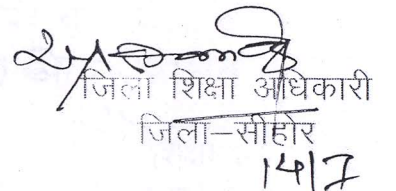 जिला शिक्षा अधिकारी
जिला-सीहोर
14/7